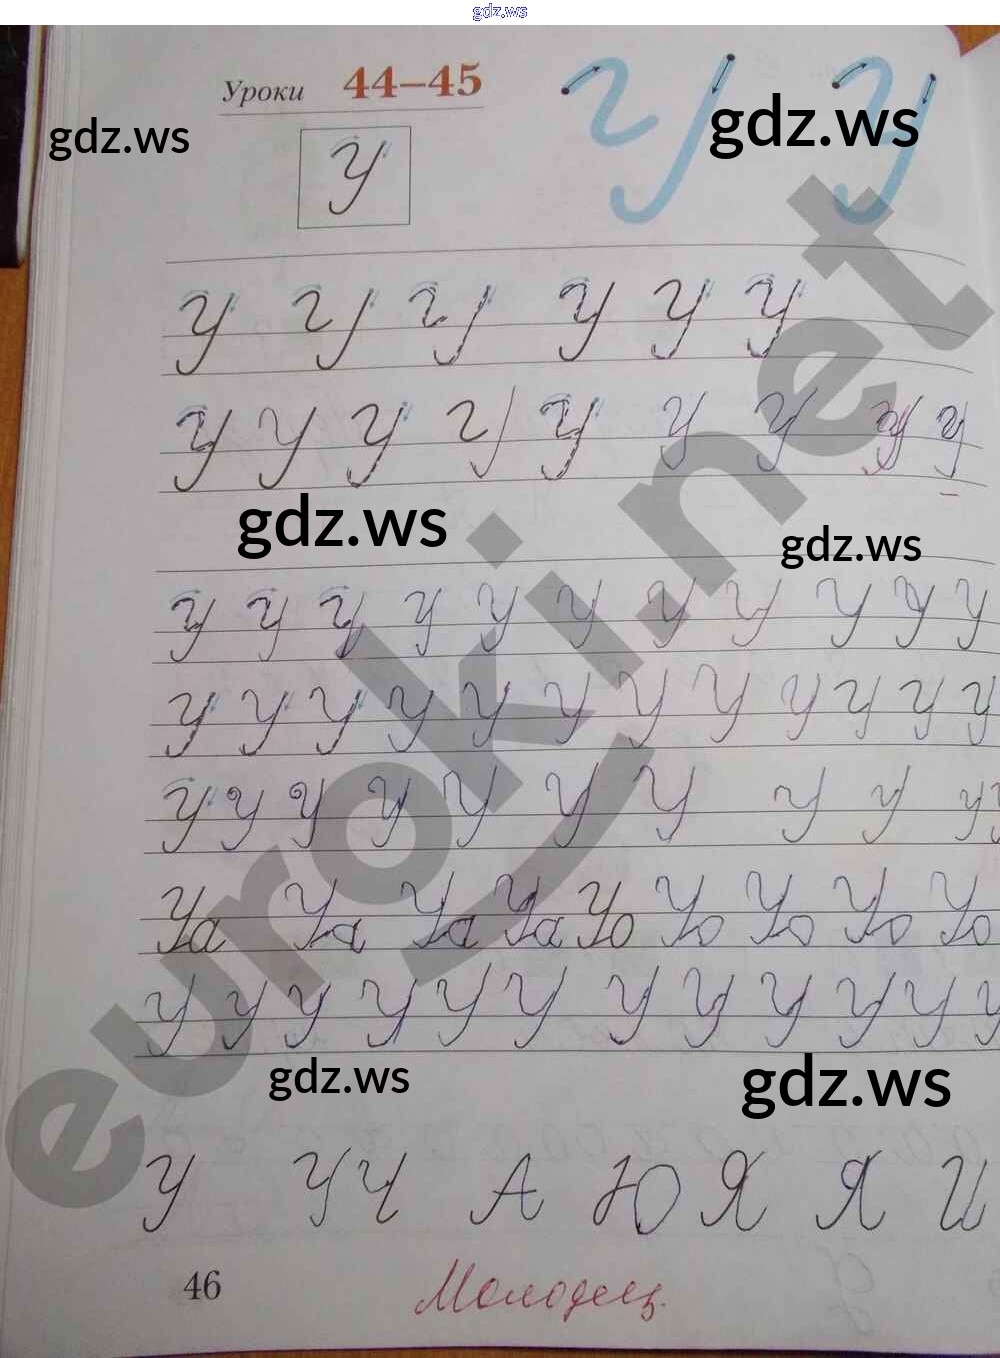 gdz.ws
Уроки 44–45
gdz.ws gdz.ws
У
У У У У У У
У У У У У У У У У
gdz.ws gdz.ws
У У У У У У У У У У У
У У У У У У У У У У У У
У У У У У У У У У У
Уа Уа Уа Уа Уо Уо Уо Уо Уо
У У У У У У У У У У У У
gdz.ws gdz.ws
У У Ч А Ю Я Я И
46 Молодец.
euroki.net